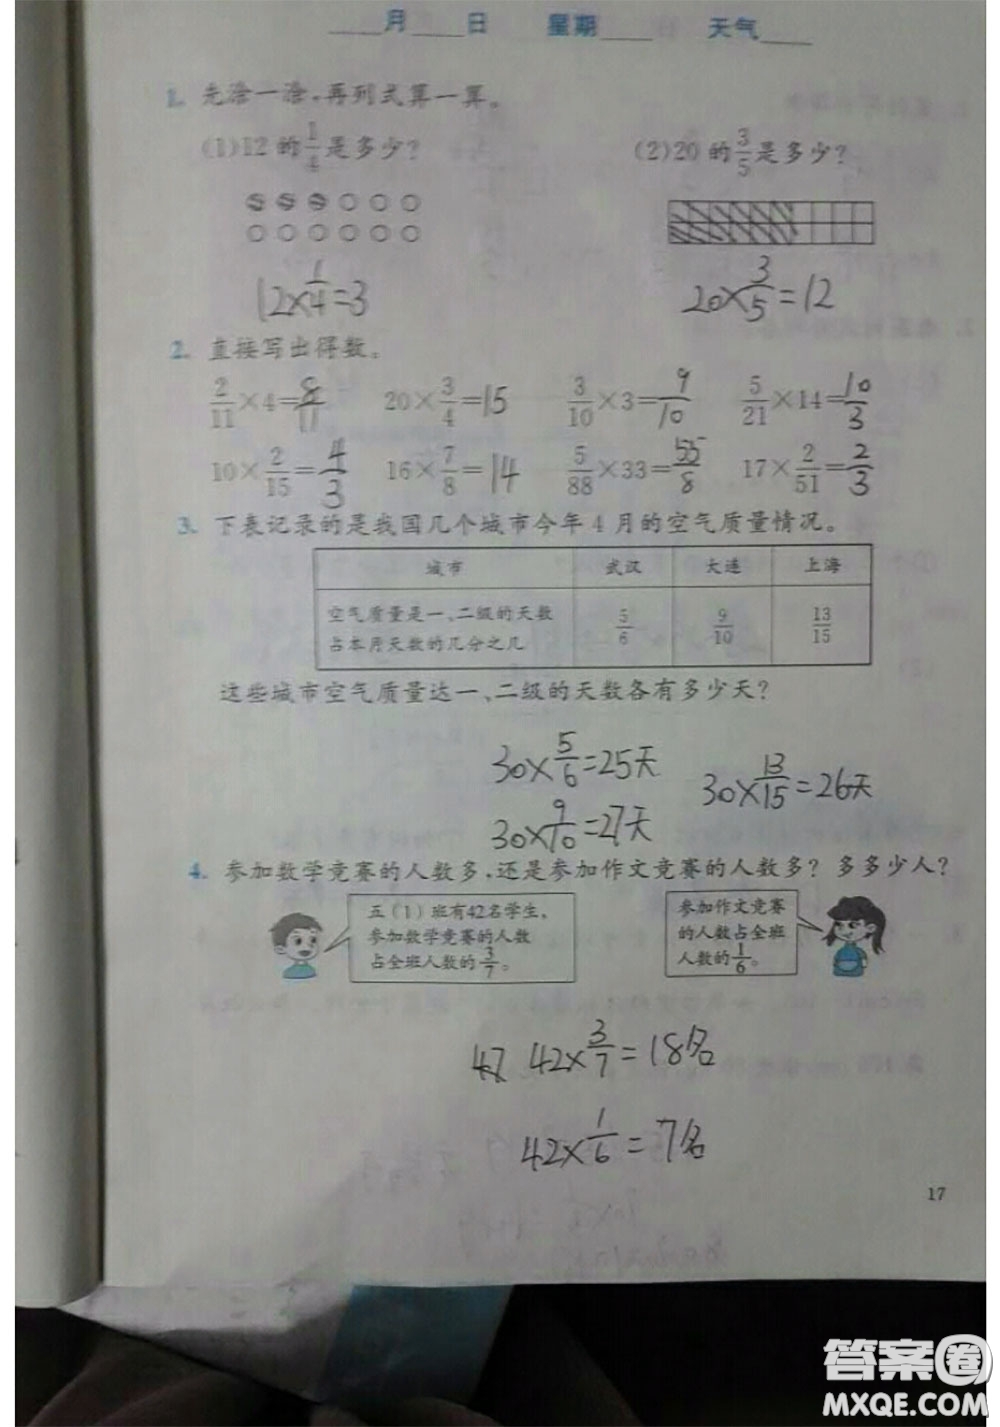 ____月____日 星期____ 天气____
1. 先涂一涂,再列式算一算。
(1)12的1/4是多少? (2)20的3/5是多少?
12×1/4=3 20×3/5=12
2. 直接写出得数。
2/11×4=8/11 20×3/4=15 3/10×3=9/10 5/21×14=10/3
10×2/15=4/3 16×7/8=14 5/88×33=55/8 17×2/51=2/3
3. 下表记录的是我国几个城市今年4月的空气质量情况。
城市 武汉 大连 上海
空气质量是一、二级的天数
占本月天数的几分之几 5/6 9/10 13/15
这些城市空气质量达一、二级的天数各有多少天?
30×5/6=25天 30×13/15=26天
30×9/10=27天
4. 参加数学竞赛的人数多,还是参加作文竞赛的人数多? 多多少人?
五(1)班有42名学生,
参加数学竞赛的人数
占全班人数的3/7。
参加作文竞赛
的人数占全班
人数的1/6。
42×3/7=18名
42×1/6=7名
17
答案圈
MXQE.COM